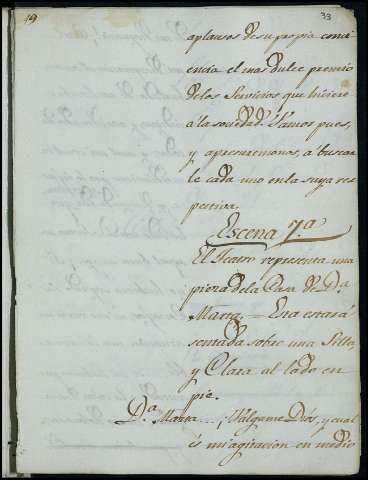 19
33
aplausos de su propia conci
encia el mas dulce premio
de los Servicios que hiciere
á la sociedad. Vamos pues,
y apresuremonos, á buscar
le cada uno en la suya res
pectiva.
Escena 7.a
El Teatro representa una
pieza de la Casa de D.a
Marta. Esta estará
sentada sobre una Silla,
y Clara al lado en
pie.
D.a Marta ... ¡Válgame Dios, y cual
és mi agitacion en medio